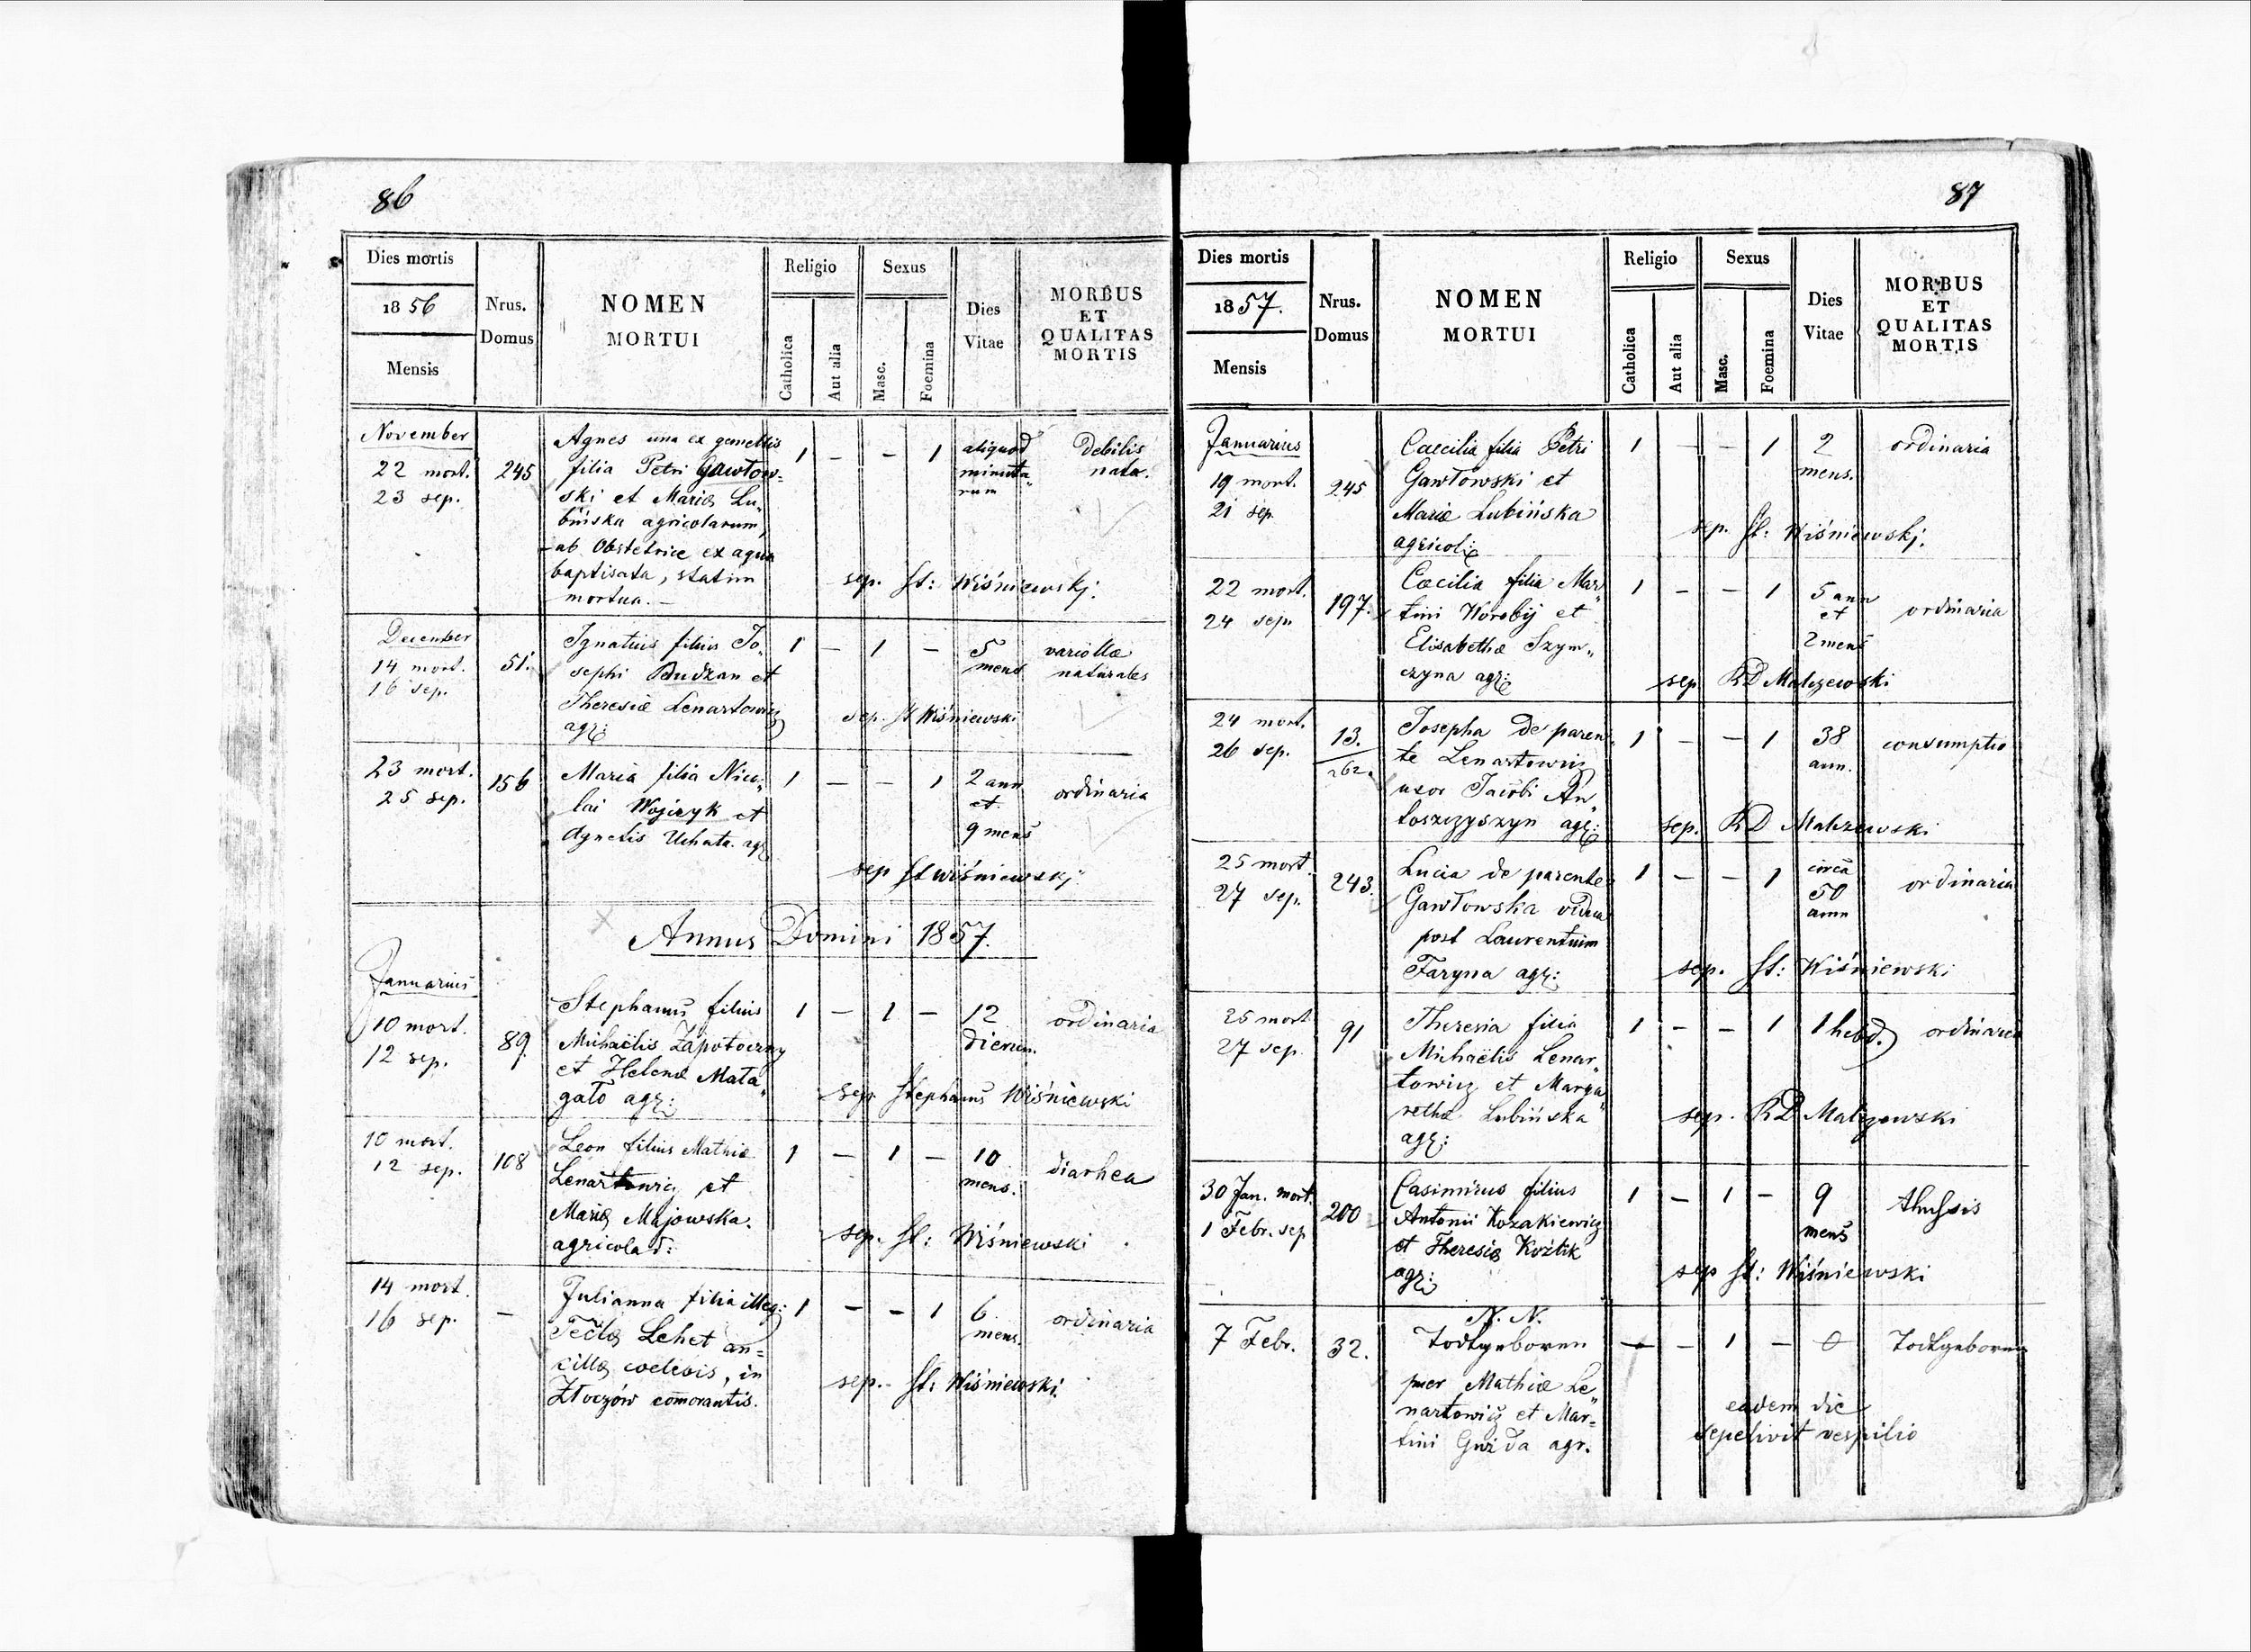 86
Dies mortis
1856
Mensis
Nrus. Domus
NOMEN MORTUI
Religio
Catholica
Aut alia
Sexus
Masc.
Foemina
Dies Vitae
MORBUS ET QUALITAS MORTIS
November
22 mort.
23 sep.
245
Agnes una ex gemellis
filia Petri Gawłow-
ski et Mariæ Lu„
bińska agricolarum,
ab Obstetrice ex aqua
baptisata, statim
mortua. –
1 – – 1
aliquod
minuta„
rum
debilis
nata.
sep. St: Wiśniewskj.
December
14 mort.
16 sep.
51.
Ignatius filius Jo„
sephi Dudzan et
Theresiæ Lenartowicz
agr:
1 – 1 –
5
mens
variollæ
naturales
sep. St Wiśniewski
23 mort.
25 sep.
156
Maria filia Nico„
lai Wojczyk et
Agnetis Uchata. agr
1 – – 1
2 ann
et
9 mens
ordinaria
sep St Wiśniewskj
Annus Domini 1857.
Januarius
10 mort.
12 sep.
89.
Stephanus filius
Michaëlis Zapotoczny
et Helenæ Mata„
gato agr:
1 – 1 –
12
dierum.
ordinaria
sep. Stephanus Wiśniewski
10 mort.
12 sep.
108
Leon filius Mathiæ
Lenartowicz et
Mariæ Majowska.
agricola d:
1 – 1 –
10
mens.
diarhea
sep. St: Wiśniewski
14 mort.
16 sep.
–
Julianna filia illeg:
Teclæ Lehet an=
cillæ coelebis, in
Złoczów com̄orantis.
1 – – 1
6
mens.
ordinaria
sep. St: Wiśniewski.
87
Dies mortis
1857.
Mensis
Nrus. Domus
NOMEN MORTUI
Religio
Catholica
Aut alia
Sexus
Masc.
Foemina
Dies Vitae
MORBUS ET QUALITAS MORTIS
Januarius
19 mort.
21 sep.
245
Caecilia filia Petri
Gawłowski et
Mariæ Lubińska
agricolæ
1 – – 1
2
mens.
ordinaria
sep. St: Wiśniewskj.
22 mort.
24 sep.
197.
Cæcilia filia Mar„
tini Worobij et
Elisabethæ Szym„
czyna agr:
1 – – 1
5 ann
et
2 mens
ordinaria
sep RD Malczewski
24 mort.
26 sep.
13.
262.
Josepha de paren„
te Lenartowicz
uxor Jacobi An„
toszczyszyn agr:
1 – – 1
38
ann.
consumptio
sep. RD Malczewski
25 mort.
27 sep.
243.
Lucia de parente
Gawłowska vidua
post Laurentium
Faryna agr:
1 – – 1
circa
50
ann
ordinaria
sep. St: Wiśniewski
25 mort
27 sep.
91
Theresia filia
Michaëlis Lenar„
towicz et Marga„
rethæ Lubińska
agr:
1 – – 1
1 hebd.
ordinaria
sep. RD Malczewski
30 Jan. mort.
1 Febr. sep
200
Casimirus filius
Antonii Kozakiewicz
et Theresiæ Koźlik
agr:
1 – 1 –
9
mens
sep St: Wiśniewski
7 Febr.
32.
N. N.
Todtgeboren
puer Mathiæ Le„
nartowicz et Mar=
tini Gwizda agr.
– – 1 –
0
Todtgeboren
eadem die
sepelivit vespilio